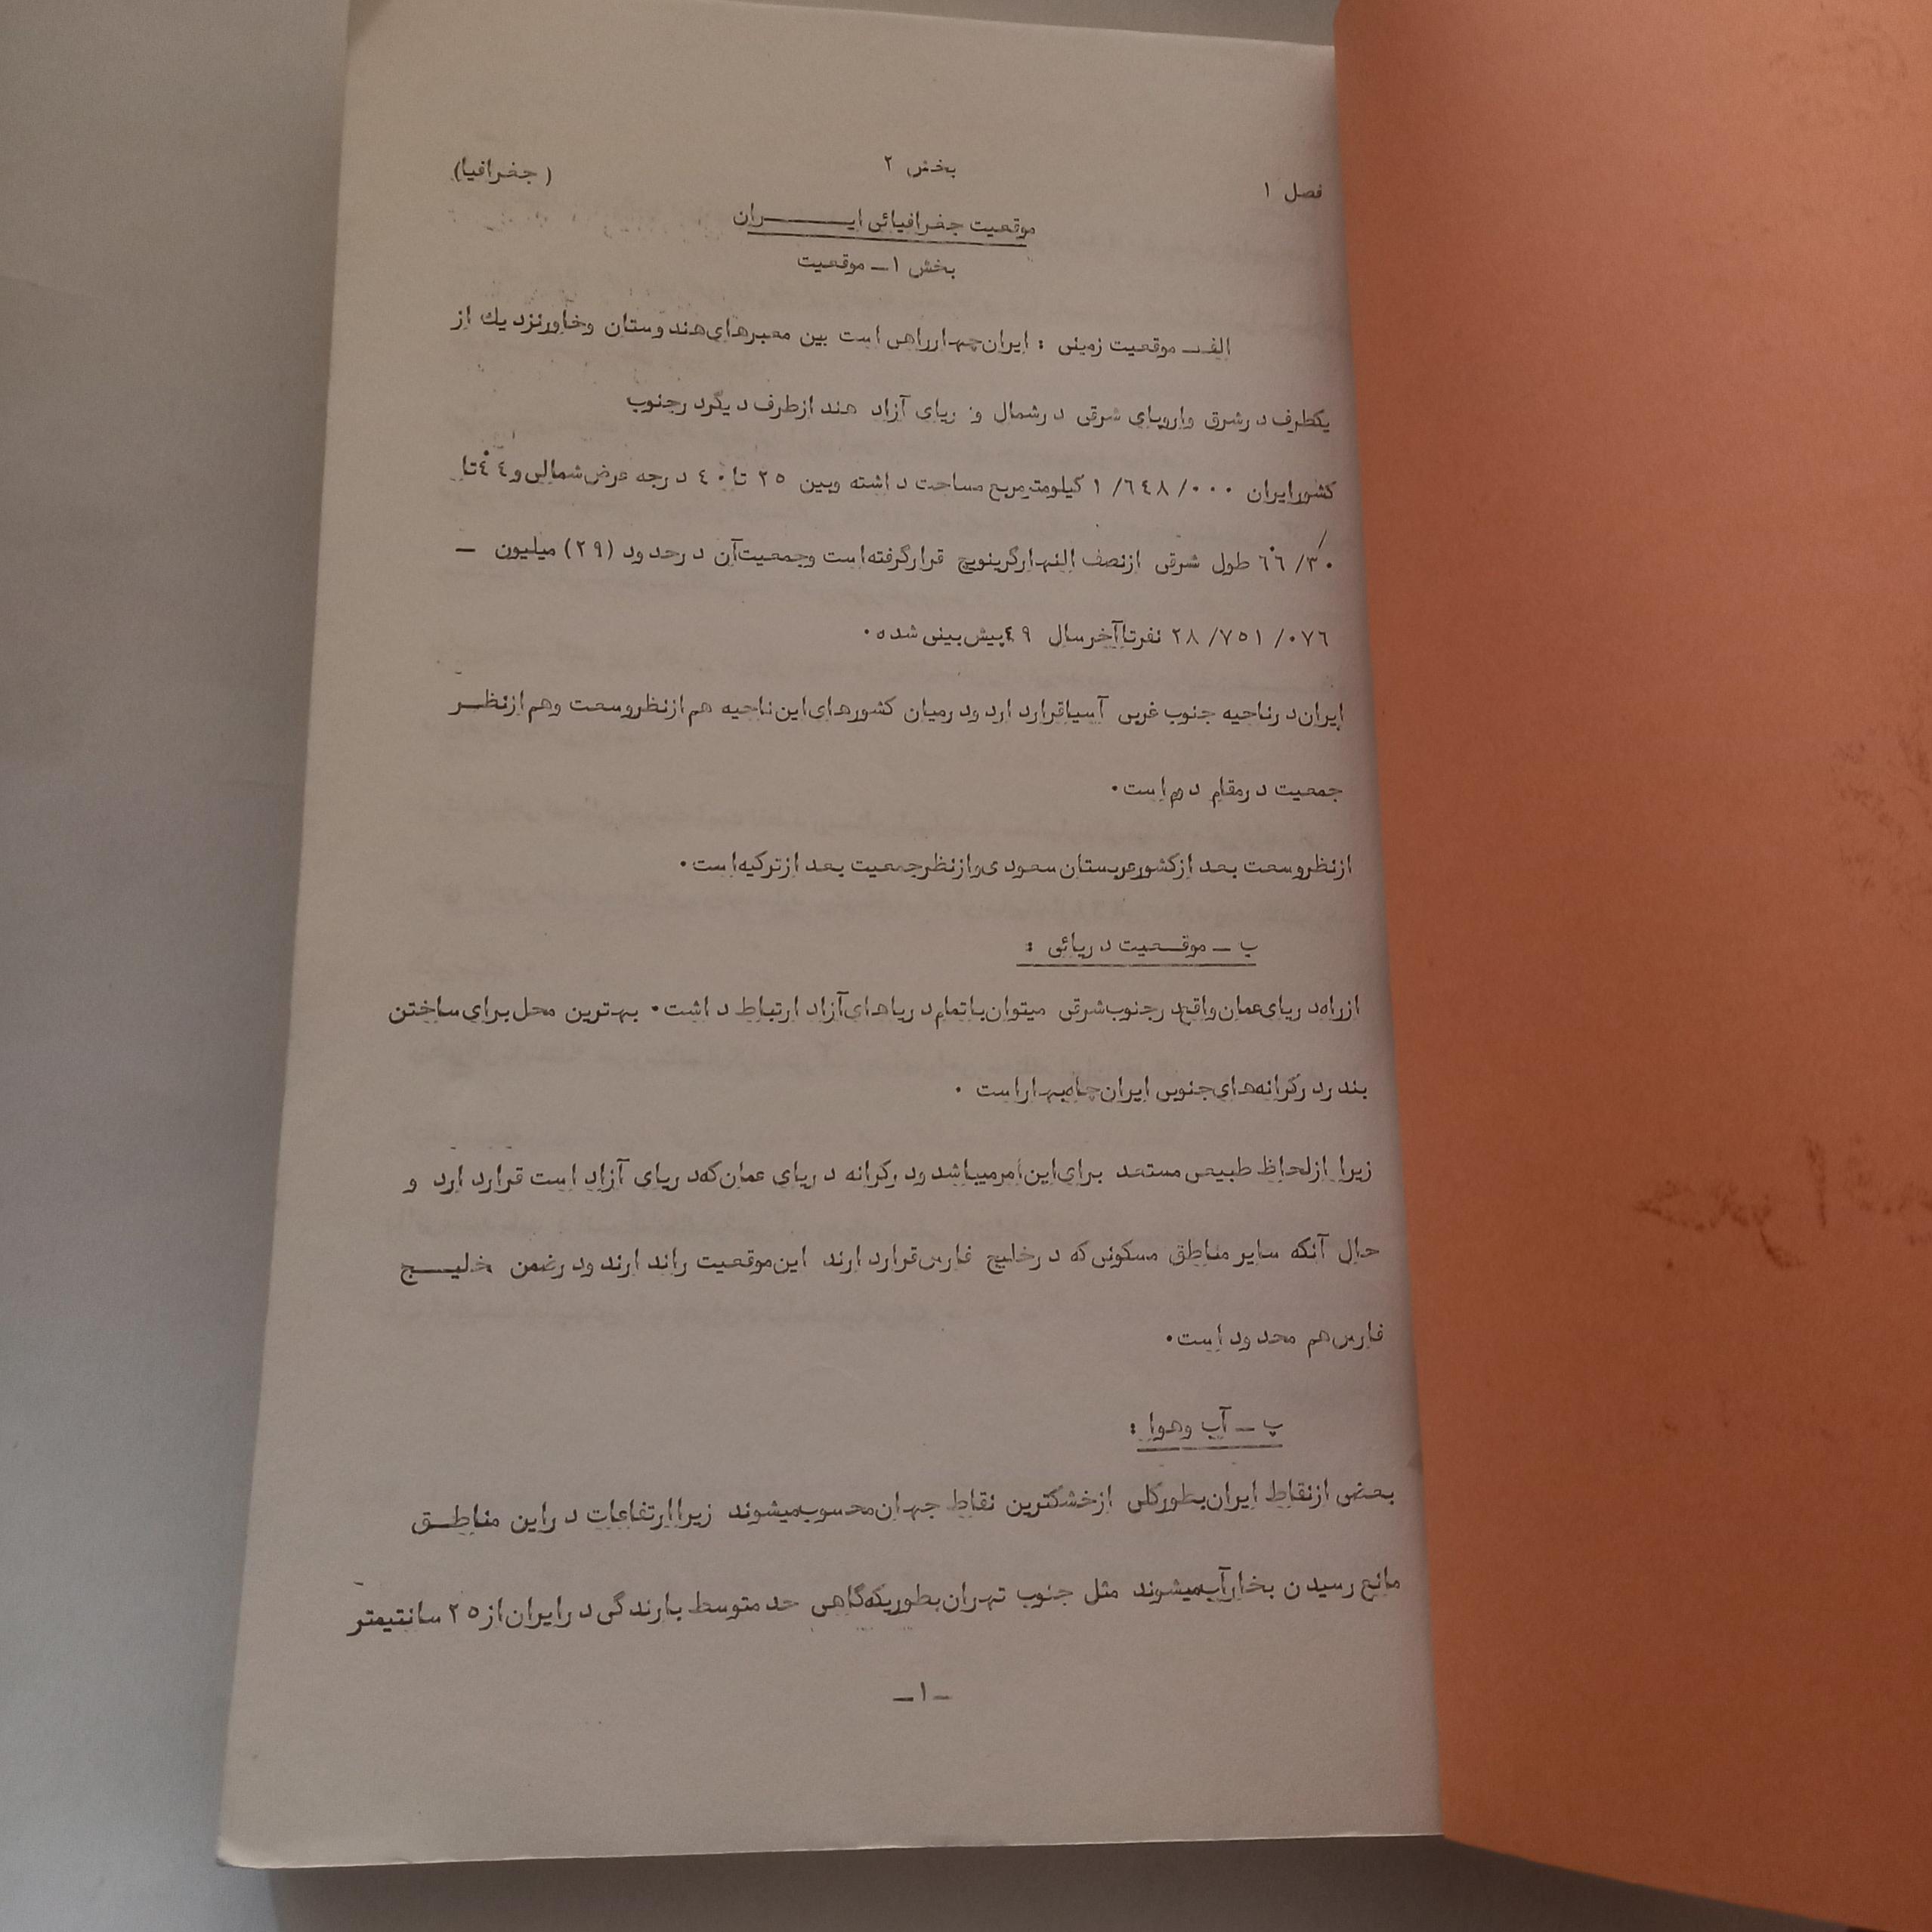 فصل ۱
بخش ۲
(جغرافیا)
موقعیت جغرافیائی ایـــــران
بخش ۱ـ موقعیت
الف ـ موقعیت زمینی : ایران چهارراهی است بین معبرهای هندوستان وخاورنزدیك از
یکطرف درشرق واروپای شرقی درشمال و ریای آزاد هند ازطرف دیگردرجنوب
کشورایران ۱/۶۴۸/۰۰۰ کیلومترمربع مساحت داشته وبین ۲۵ تا ۴۰ درجه عرض شمالی و ۴۴ْ تا
۶۶ْ/۳۰َ طول شرقی ازنصف النهارگرینویچ قرارگرفته است وجمعیت آن درحدود (۲۹) میلیون ـ
۲۸/۷۵۱/۰۷۶ نفرتاآخرسال ۴۹ پیش بینی شده .
ایران درناحیه جنوب غربی آسیاقراردارد ودرمیان کشورهای این ناحیه هم ازنظروسعت وهم ازنظـر
جمعیت درمقام دوم است .
ازنظروسعت بعد ازکشورعربستان سعودی وازنظرجمعیت بعد ازترکیه است .
ب ـ موقـعیت دریائی :
ازراه دریای عمان واقع درجنوب شرقی میتوان باتمام دریاهای آزاد ارتباط داشت . بهترین محل برای ساختن
بندردرکرانه های جنوبی ایران چاه بهاراست .
زیرا ازلحاظ طبیعی مستعد برای این امرمیباشد ودرکرانه دریای عمان که دریای آزاد است قراردارد و
حال آنکه سایر مناطق مسکونی که درخلیج فارس قراردارند این موقعیت راندارند ودرضمن خلیــج
فارس هم محدوداست .
پ ـ آب وهوا :
بعضی ازنقاط ایران بطورکلی ازخشکترین نقاط جهان محسوب میشوند زیراارتفاعات دراین مناطـق
مانع رسیدن بخارآب میشوند مثل جنوب تهران بطوریکه گاهی حد متوسط بارندگی درایران از ۲۵ سانتیمتر
ـ ۱ ـ